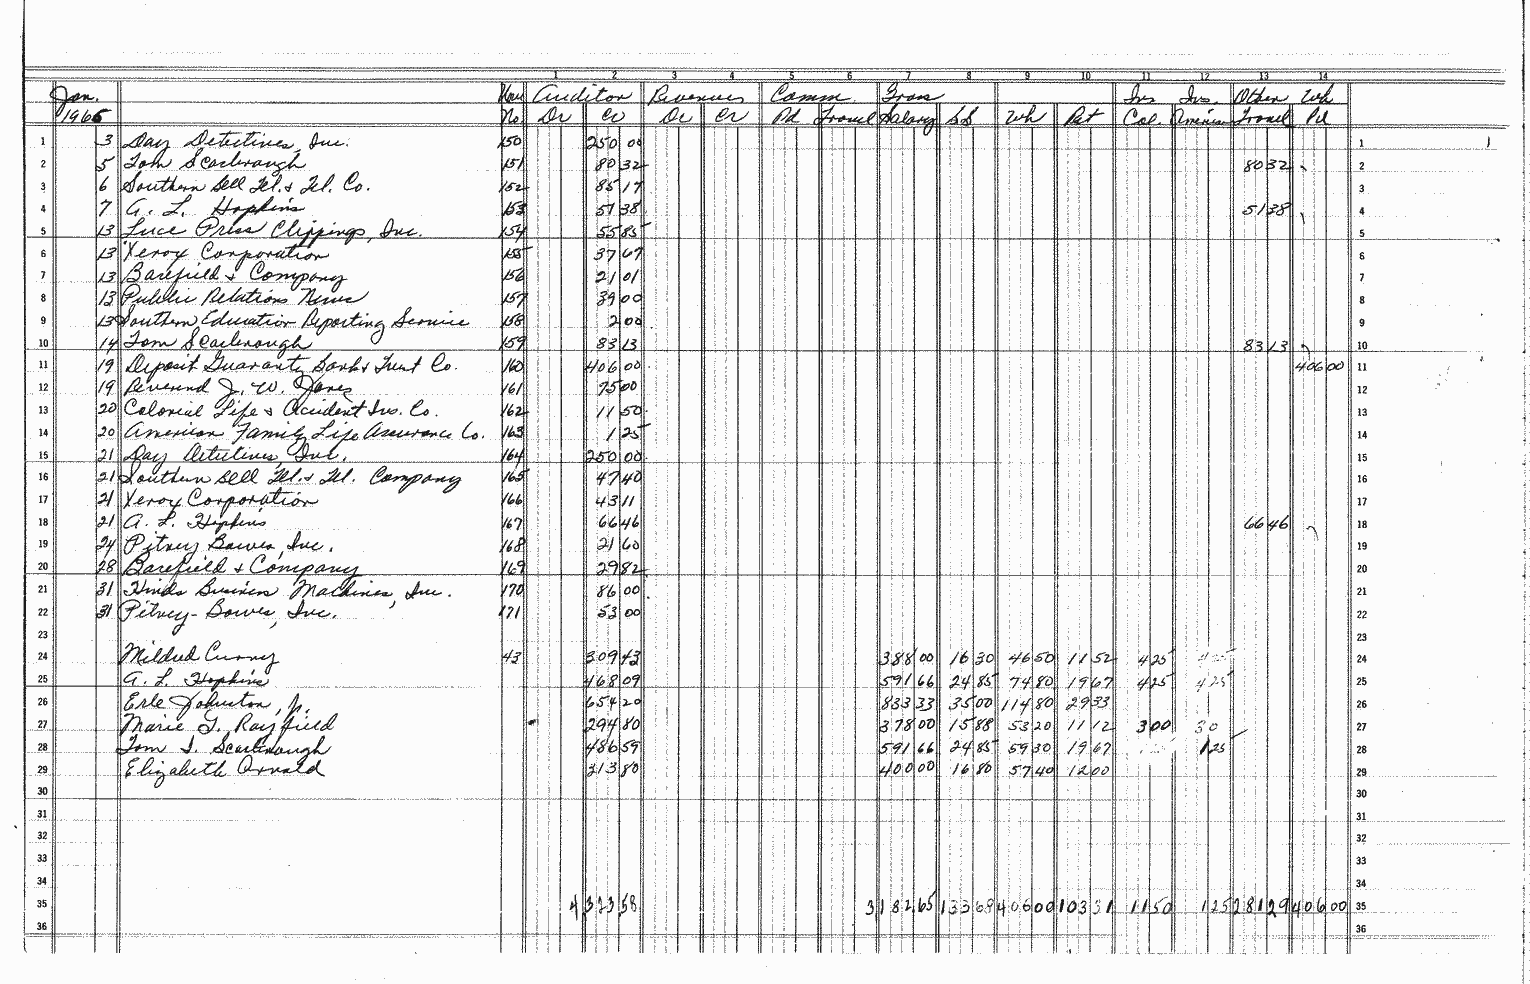 1 2 3 4 5 6 7 8 9 10 11 12 13 14
Jan. Auditor Revenues Comm. Ins Ins. Other Wh
1966 No. Dr Cr Dr Cr Pd Travel Salary SS Wh Ret Col. American Travel Pd
1 3 Day Detectives, Inc. 150 250 00 1
2 5 Tom Scarbrough 151 80 32 80 32 2
3 6 Southern Bell Tel. & Tel. Co. 152 85 17 3
4 7 A. L. Hopkins 153 51 38 51 38 4
5 13 Luce Press Clippings, Inc. 154 55 85 5
6 13 Xerox Corporation 155 37 67 6
7 13 Barefield & Company 156 21 01 7
8 13 Public Relations News 157 39 00 8
9 13 Southern Education Reporting Service 158 2 00 9
10 14 Tom Scarbrough 159 83 13 83 13 10
11 19 Deposit Guaranty Bank & Trust Co. 160 406 00 406 00 11
12 19 Reverend J. W. Jones 161 75 00 12
13 20 Colonial Life & Accident Ins. Co. 162 11 50 13
14 20 American Family Life Assurance Co. 163 1 25 14
15 21 Day Detectives, Inc. 164 250 00 15
16 21 Southern Bell Tel. & Tel. Company 165 47 40 16
17 21 Xerox Corporation 166 43 11 17
18 21 A. L. Hopkins 167 66 46 66 46 18
19 24 Pitney Bowes, Inc. 168 21 60 19
20 28 Barefield & Company 169 29 82 20
21 31 Hinds Business Machines, Inc. 170 86 00 21
22 31 Pitney-Bowes, Inc. 171 53 00 22
23 23
24 Mildred Curry 43 309 43 388 00 16 30 46 50 11 52 4 25 4 25 24
25 A. L. Hopkins 468 09 591 66 24 85 74 80 19 67 4 25 4 25 25
26 Erle Johnston, Jr. 654 20 833 33 35 00 114 80 29 33 26
27 Marie G. Rayfield 294 80 378 00 15 88 53 20 11 12 3 00 30 27
28 Tom J. Scarbrough 486 59 591 66 24 85 59 30 19 67 1 25 28
29 Elizabeth Arnold 313 80 400 00 16 80 57 40 12 00 29
30 30
31 31
32 32
33 33
34 34
35 4 323 58 3 182 65 133 68 406 00 103 31 11 50 1 25 281 29 406 00 35
36 36